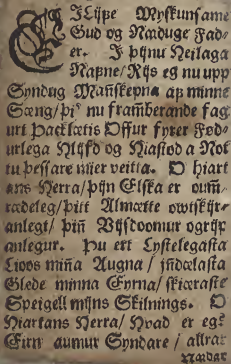 Eilijfe Myskunsame
Gud og Naduge Fad-
er. I þijnu Heilaga
Nafne/ Rijs eg nu upp
Syndug Mañskepna af minne
Sæng/ þier nu fram̃berande fag
urt Packlætis Offur fyrer Fød-
urlega Hlijfd og Hiastod a Not
tu þessare mier veitta. O hiart
ans Herra/ þijn Elska er oum̃-
rædeleg/ þitt Almætte owtskijr-
anlegt/ þin̄ Vijsdoomur ogrijp
anlegur. Þu ert Lystelegasta
Lioos miña Augna/ jndælasta
Glede minna Eyrna/ skiærasta
Speigell mijns Skilnings. O
Hiartans Herra/ Hvad er eg?
Eirn aumur Syndare/ allrar
Nadar